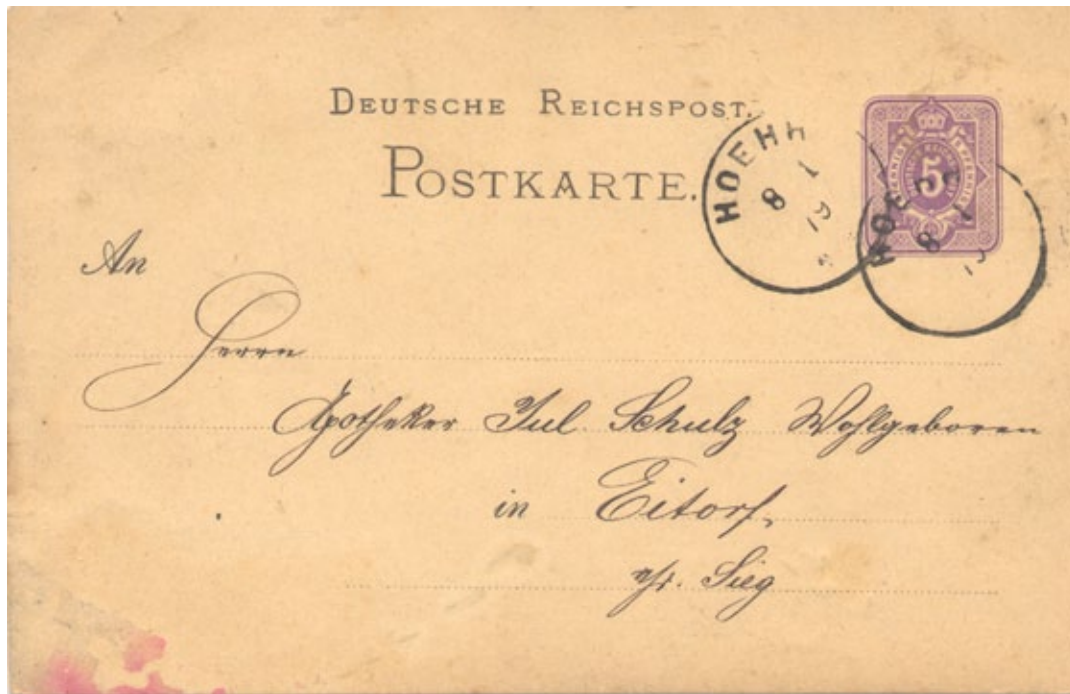 DEUTSCHE REICHSPOST.
POSTKARTE.
HOEHR
8 1
5
HOEHR
8 1
An
Herrn
Apotheker Jul. Schulz Wohlgeboren
in Eitorf,
Sieg